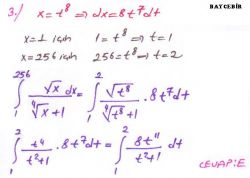 BAYCEBİR
3-) x=t⁸ ⇒ dx=8t⁷dt
x=1 için 1=t⁸ ⇒ t=1
x=256 için 256=t⁸ ⇒ t=2
∫₁²⁵⁶ √x/(∜x+1) dx = ∫₁² √t⁸/(∜t⁸+1) · 8t⁷dt
∫₁² t⁴/(t²+1) · 8t⁷dt = ∫₁² 8t¹¹/(t²+1) dt
CEVAP:E